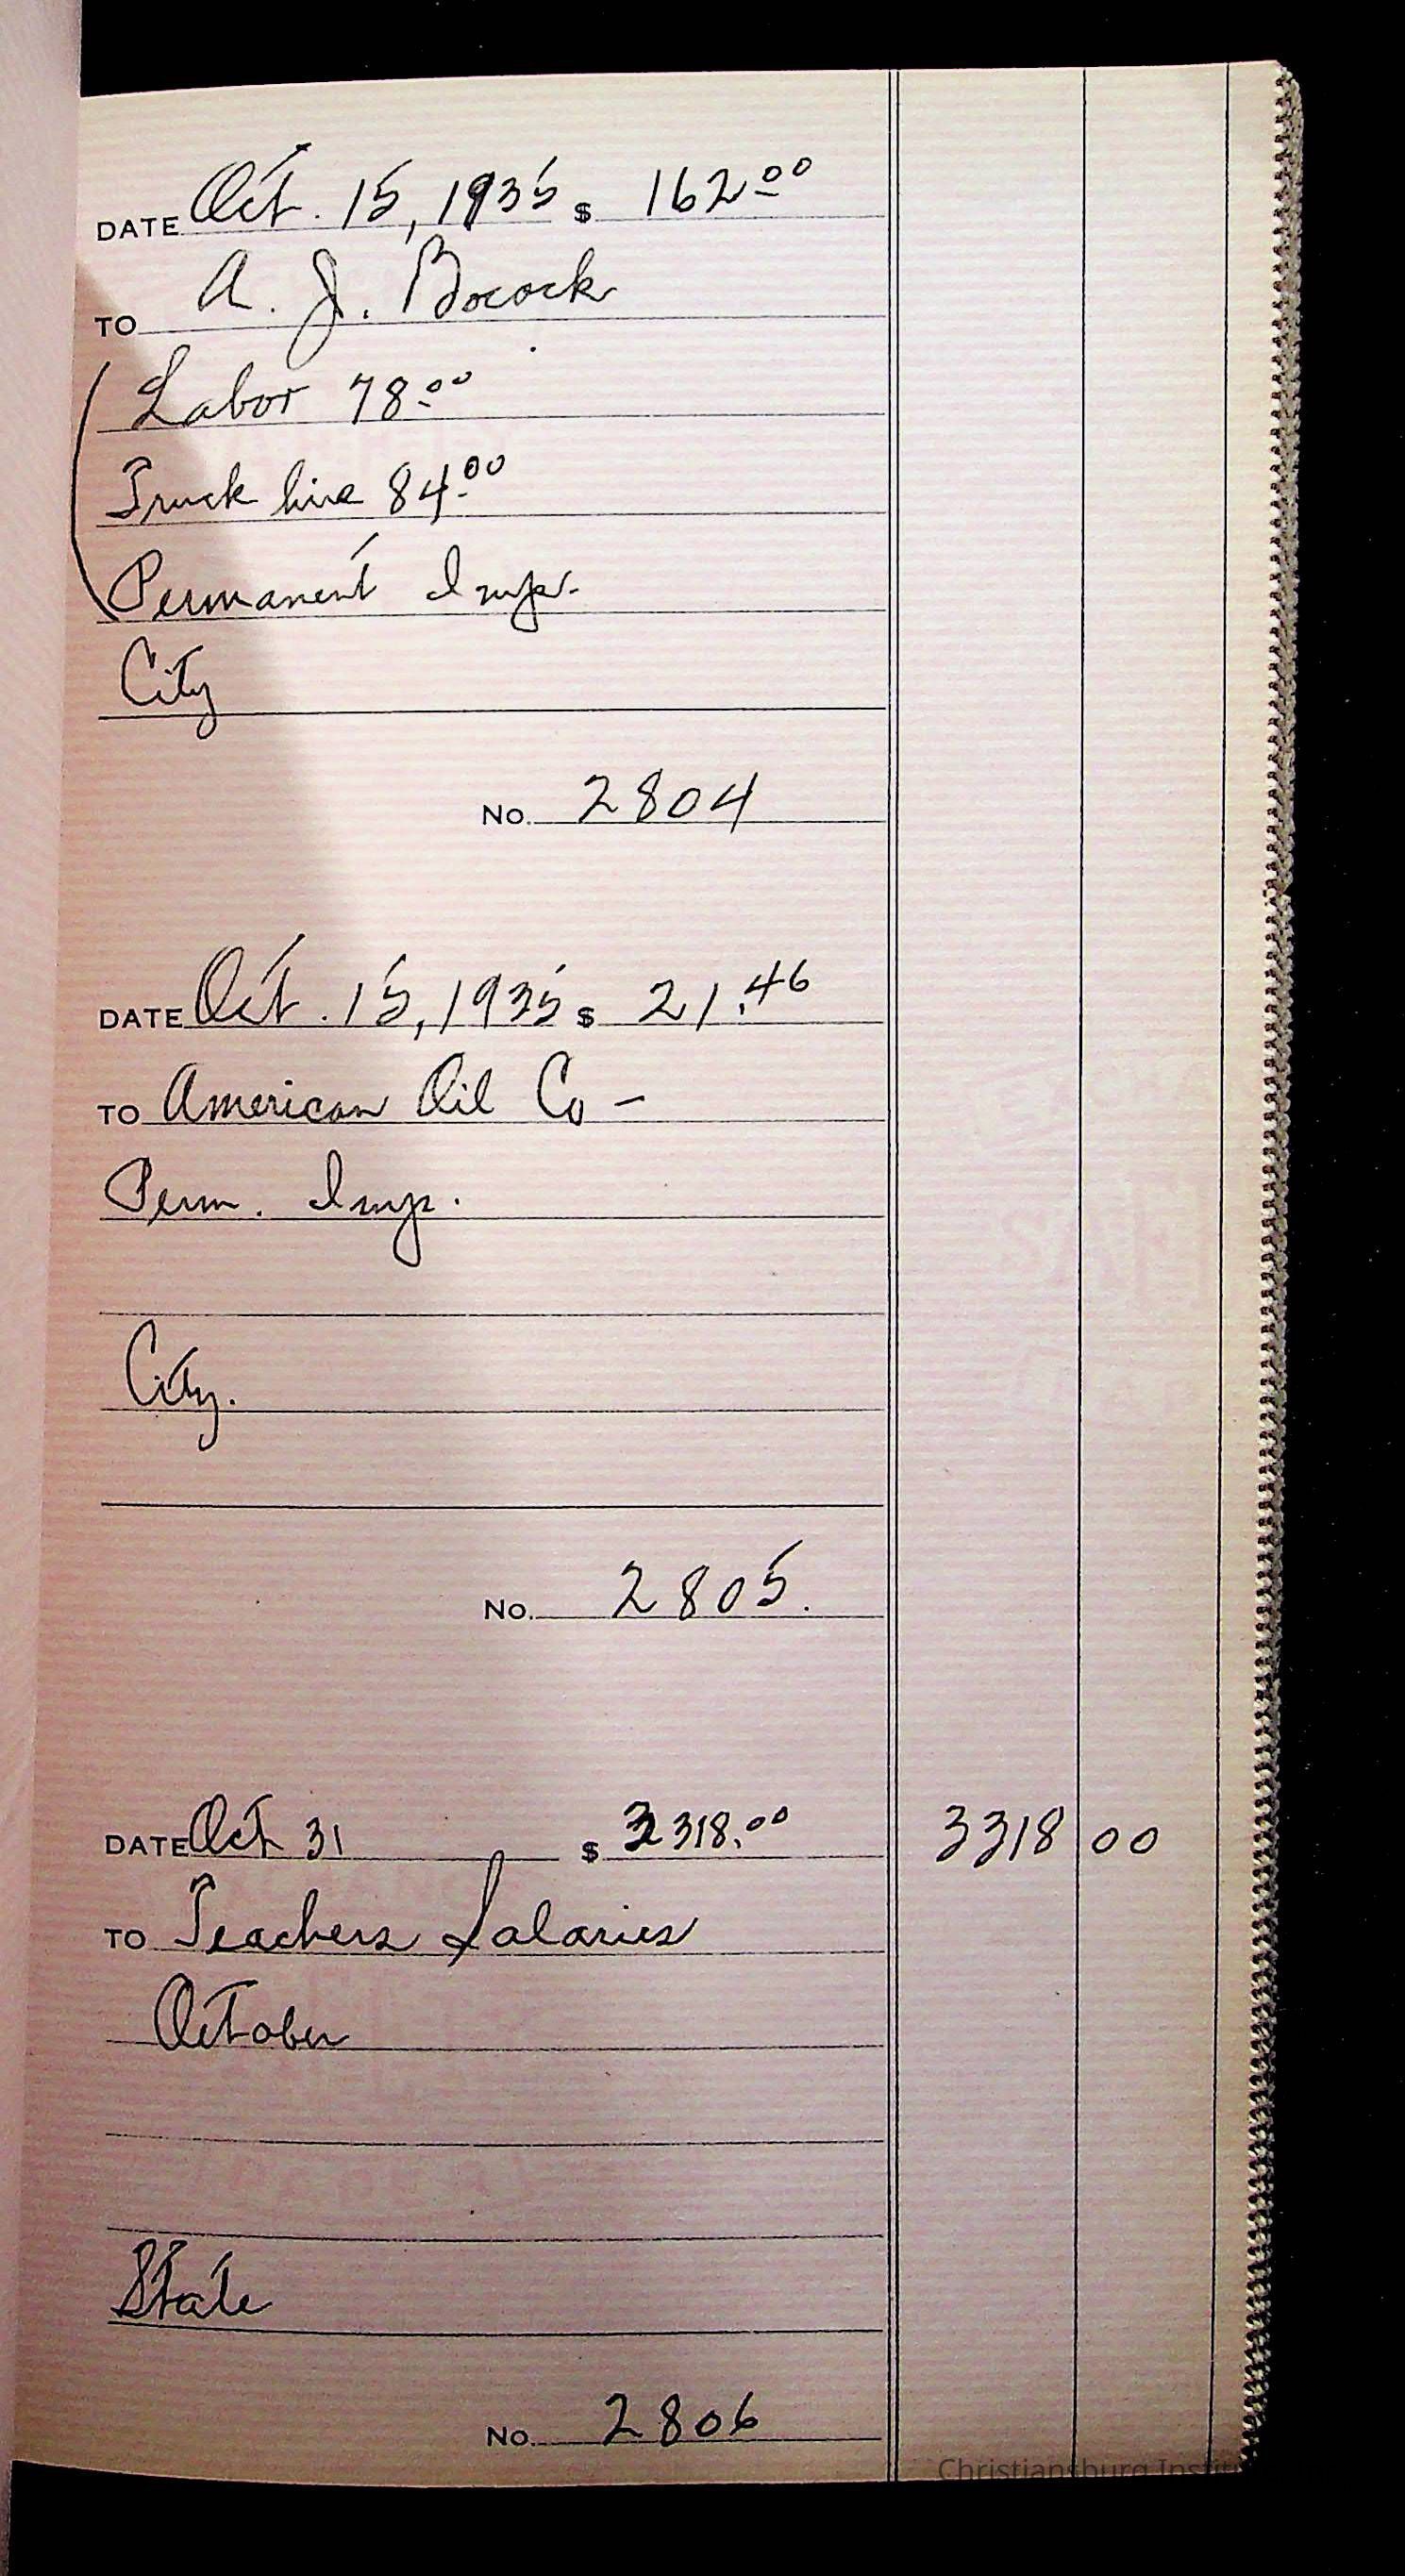 DATE Oct. 15, 1935 $ 162.00
TO A. J. Bocock
Labor 78.00
Truck hire 84.00
Permanent Imp.
City
No. 2804
DATE Oct. 15, 1935 $ 21.46
TO American Oil Co -
Perm. Imp.
City.
No. 2805.
DATE Oct 31 $ 3318.00 3318 00
TO Teachers Salaries
October
State
No. 2806